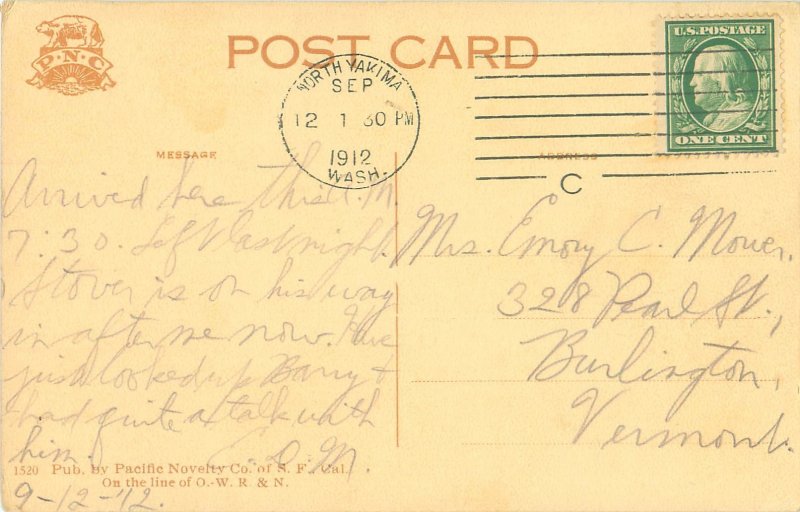 P·N·C
POST CARD
NORTH YAKIMA
SEP
12 1 30 PM
1912
WASH.
C
U.S. POSTAGE
ONE CENT
MESSAGE
ADDRESS
Arrived here this A.M.
7:30. Left last night.
Stover is on his way
in after me now. Have
just looked up Barry &
had quite a talk with
him. E.C.M.
9-12-12.
Mrs. Emory C. Mower.
328 Pearl St.,
Burlington,
Vermont.
1520 Pub. by Pacific Novelty Co. of S. F. Cal.
On the line of O.-W. R. & N.